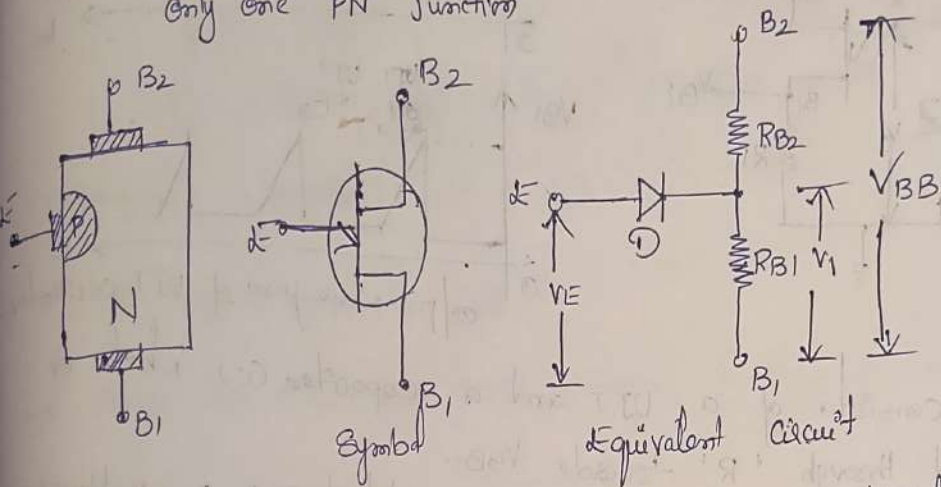 Only one PN Junction
B2
E
P
N
B1
B2
E
B1
Symbol
B2
RB2
E
D
RB1
V1
VBB
VE
B1
Equivalent Circuit